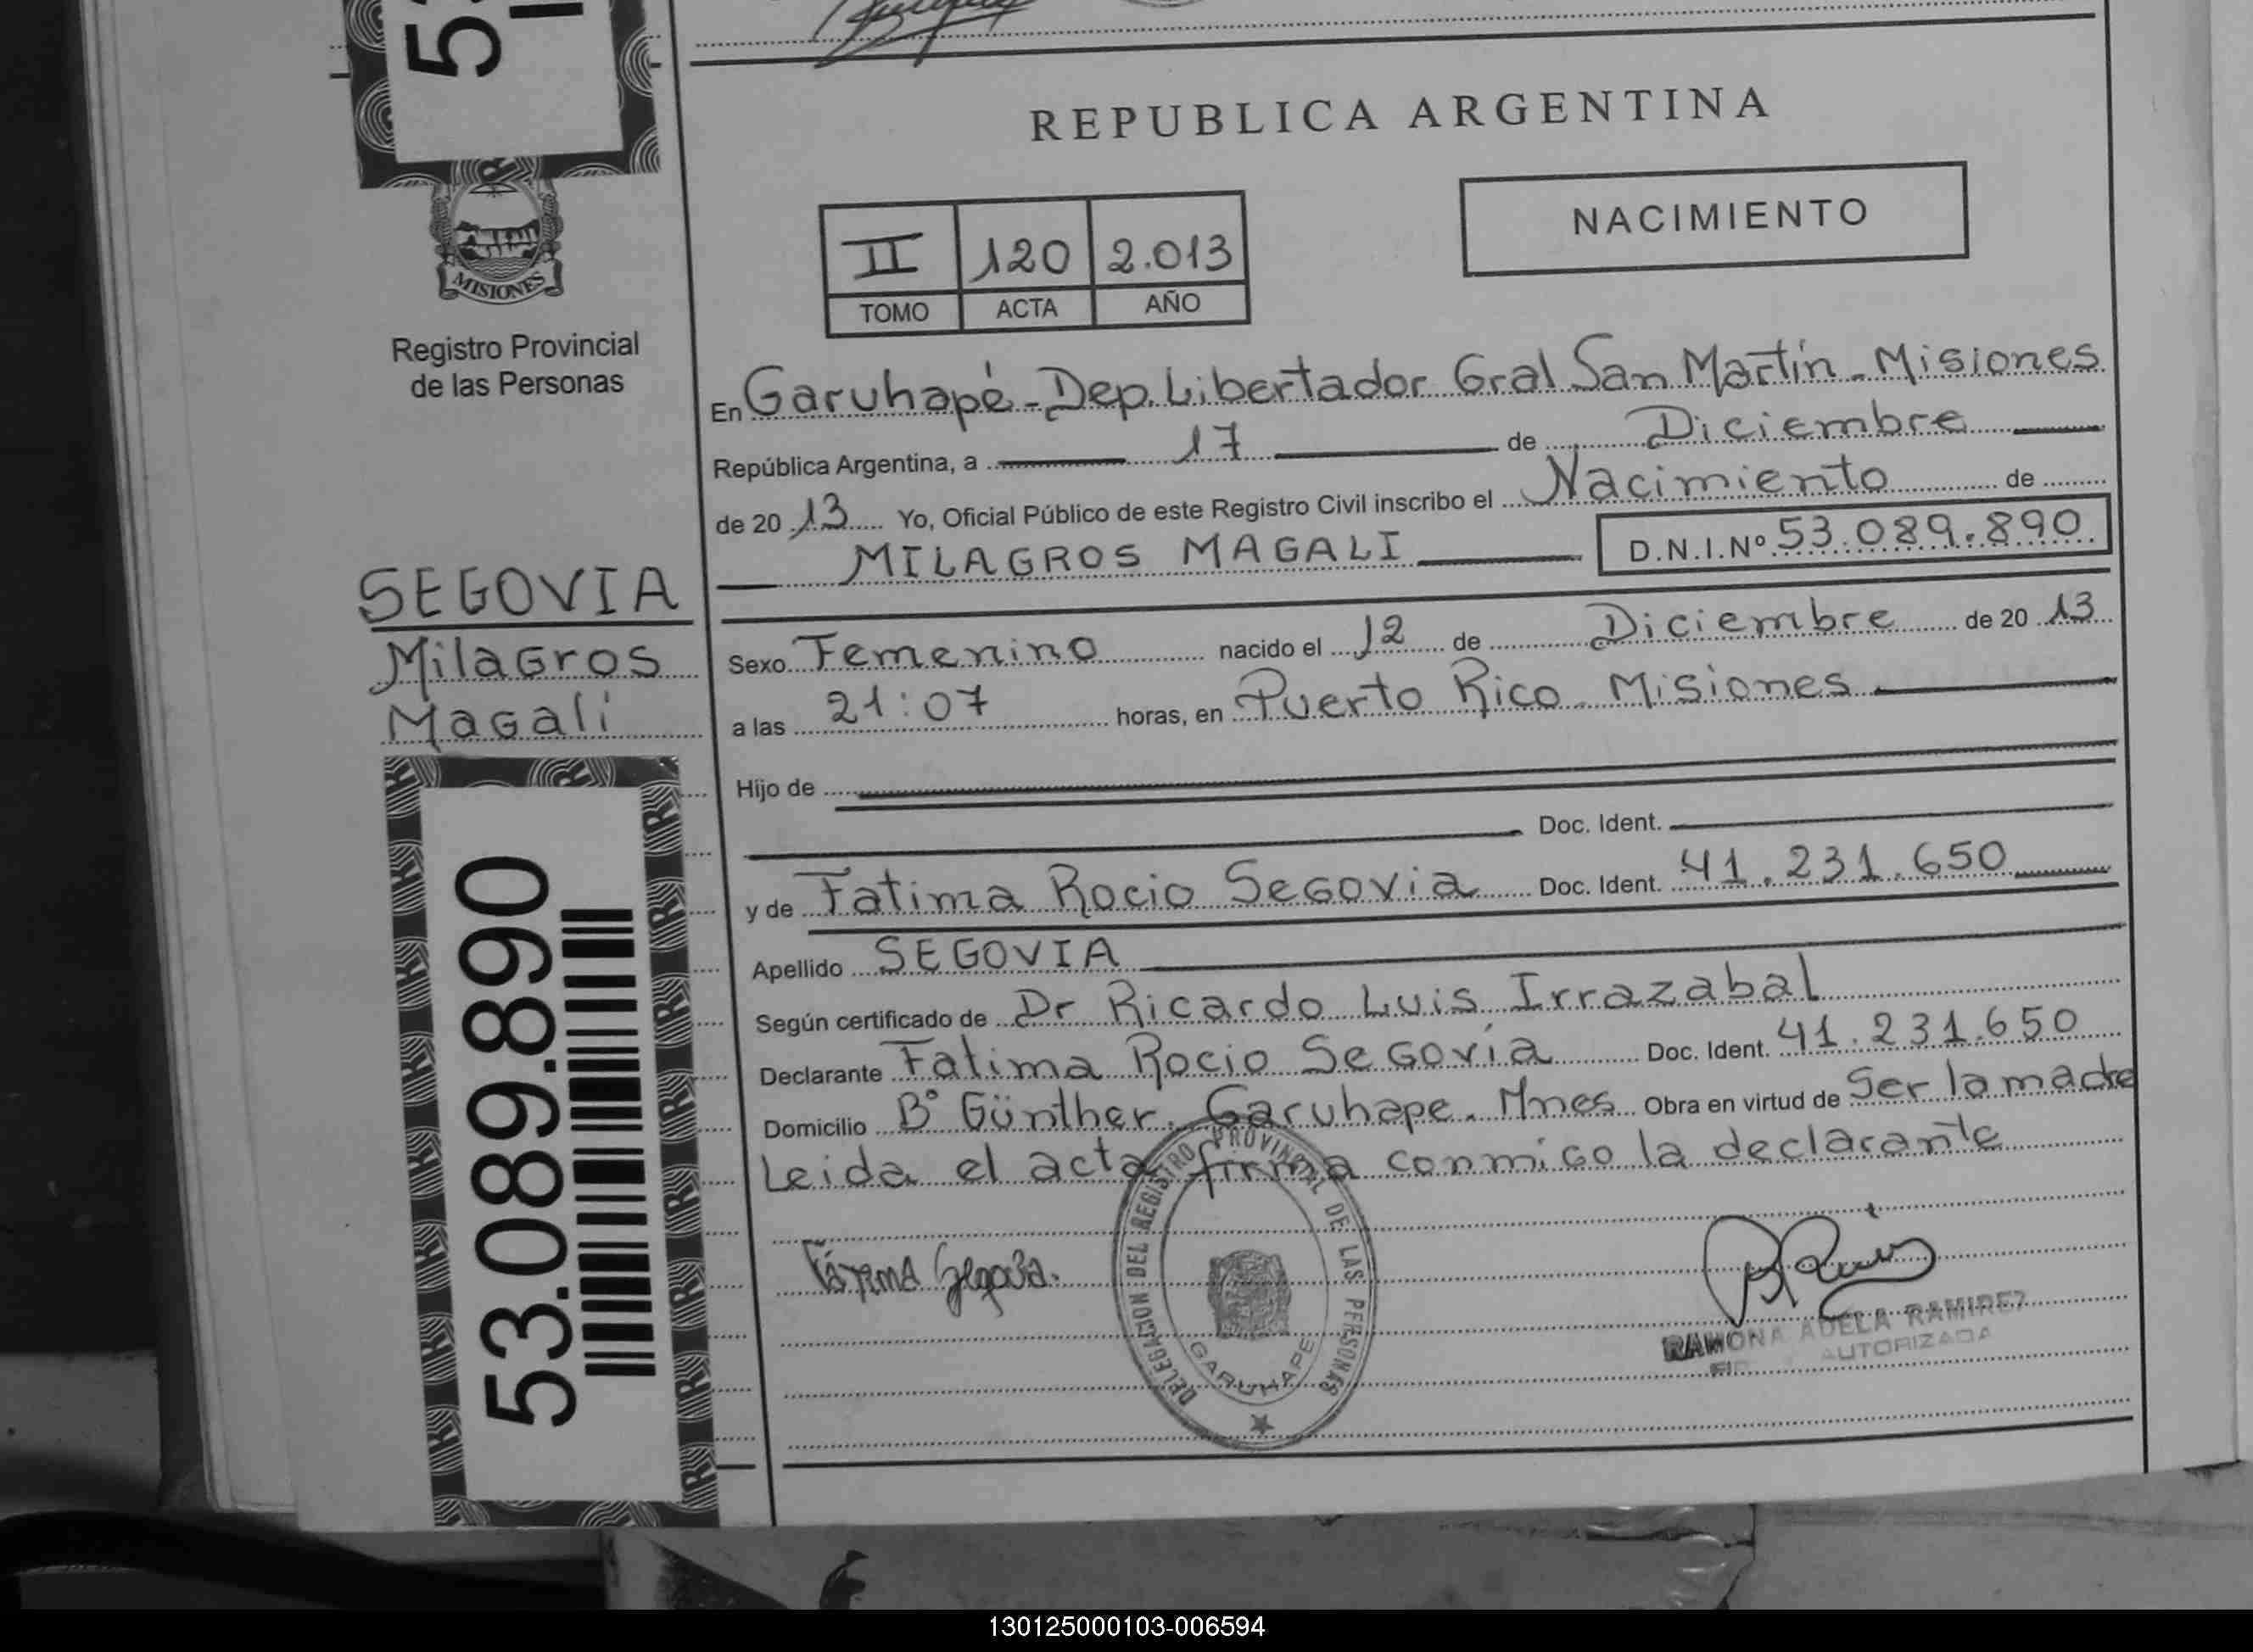 REPUBLICA ARGENTINA
NACIMIENTO
II 120 2.013
TOMO ACTA AÑO
MISIONES
Registro Provincial
de las Personas
En Garuhapé - Dep. Libertador Gral San Martín - Misiones
República Argentina, a 17 de Diciembre
de 20 13 Yo, Oficial Público de este Registro Civil inscribo el Nacimiento de
MILAGROS MAGALI D.N.I.Nº 53.089.890
SEGOVIA
Milagros
Magali
Sexo Femenino nacido el 12 de Diciembre de 20 13
a las 21:07 horas, en Puerto Rico - Misiones
Hijo de
Doc. Ident.
y de Fatima Rocio Segovia Doc. Ident. 41.231.650
Apellido SEGOVIA
Según certificado de Dr Ricardo Luis Irrazabal
Declarante Fatima Rocio Segovia Doc. Ident. 41.231.650
Domicilio Bº Günther. Garuhape. Mnes Obra en virtud de Ser la madre
Leida el acta firma conmigo la declarante
53.089.890
Fátima Segovia.
DELEGACION DEL REGISTRO PROVINCIAL DE LAS PERSONAS
GARUHAPE
RAMONA ADELA RAMIREZ
AUTORIZADA
130125000103-006594